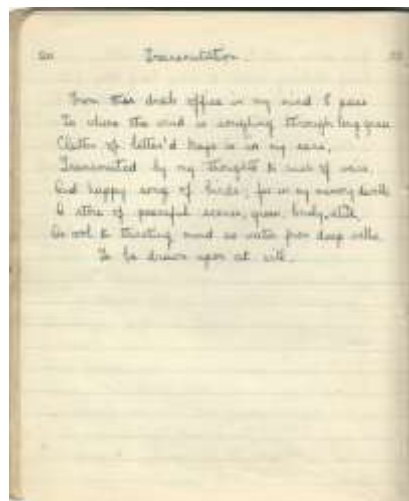 Transmutation.
From this drab office in my mind I pass
To where the wind is soughing through long grass
Clatter of letter'd keys is in my ears,
Transmuted by my thoughts to rush of
And happy song of birds; for in my memory dwells
A store of peaceful scenes, green, lovely, still,
As cool to thirsting mind as water from deep wells
To be drawn upon at will.